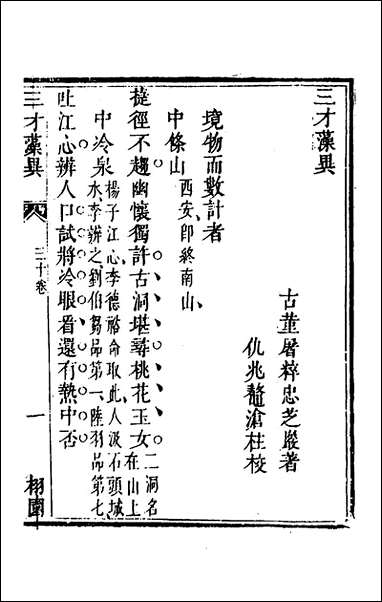 三才藻異
古董屠粹忠芝巖著
仇兆鰲滄柱校
境物而數計者
中條山西安、即終南山、
捷徑不趨幽懷獨許古洞堪尋桃花玉女二洞名在山上
中冷泉楊子江心李德裕命取此人汲石頭城水李辨之劉伯芻品第一陸羽品第七
吐江心辨人口試將冷眼看還有熱中否
三才藻異
三十卷
一
栩園